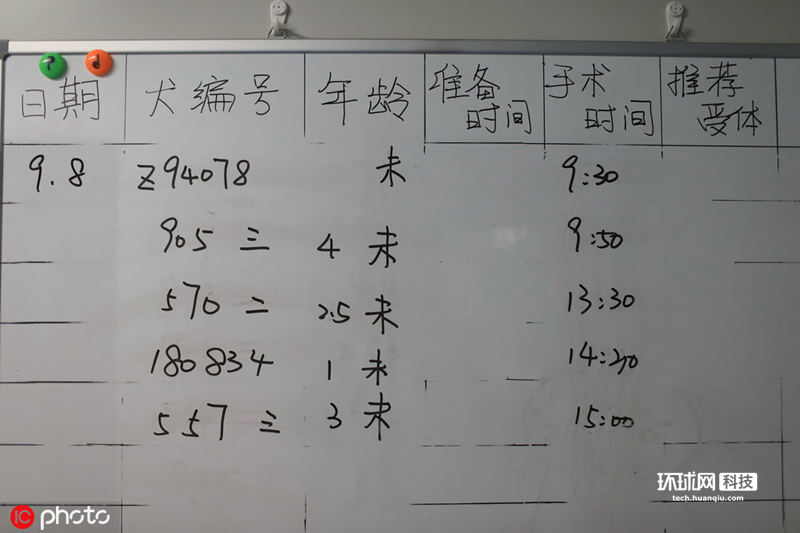 日期 犬编号 年龄 准备时间 手术时间 推荐受体
9.8 Z94078 未 9:30
905 三 4 未 9:50
570 二 2.5 未 13:30
180834 1 未 14:20
557 三 3 未 15:00
环球网 科技
tech.huanqiu.com
IC photo